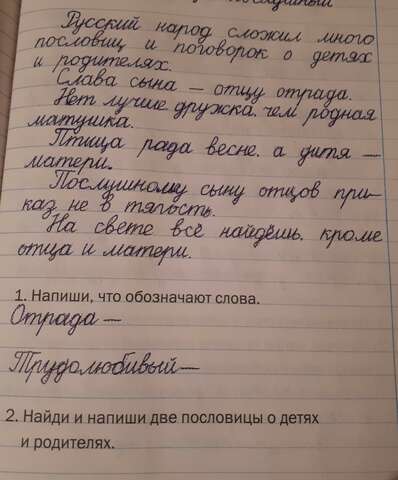 Русский народ сложил много
пословиц и поговорок о детях
и родителях.
Слава сына — отцу отрада.
Нет лучше дружка, чем родная
матушка.
Птица рада весне, а дитя —
матери.
Послушному сыну отцов при-
каз не в тягость.
На свете всё найдёшь, кроме
отца и матери.
1. Напиши, что обозначают слова.
Отрада —
Трудолюбивый —
2. Найди и напиши две пословицы о детях
и родителях.